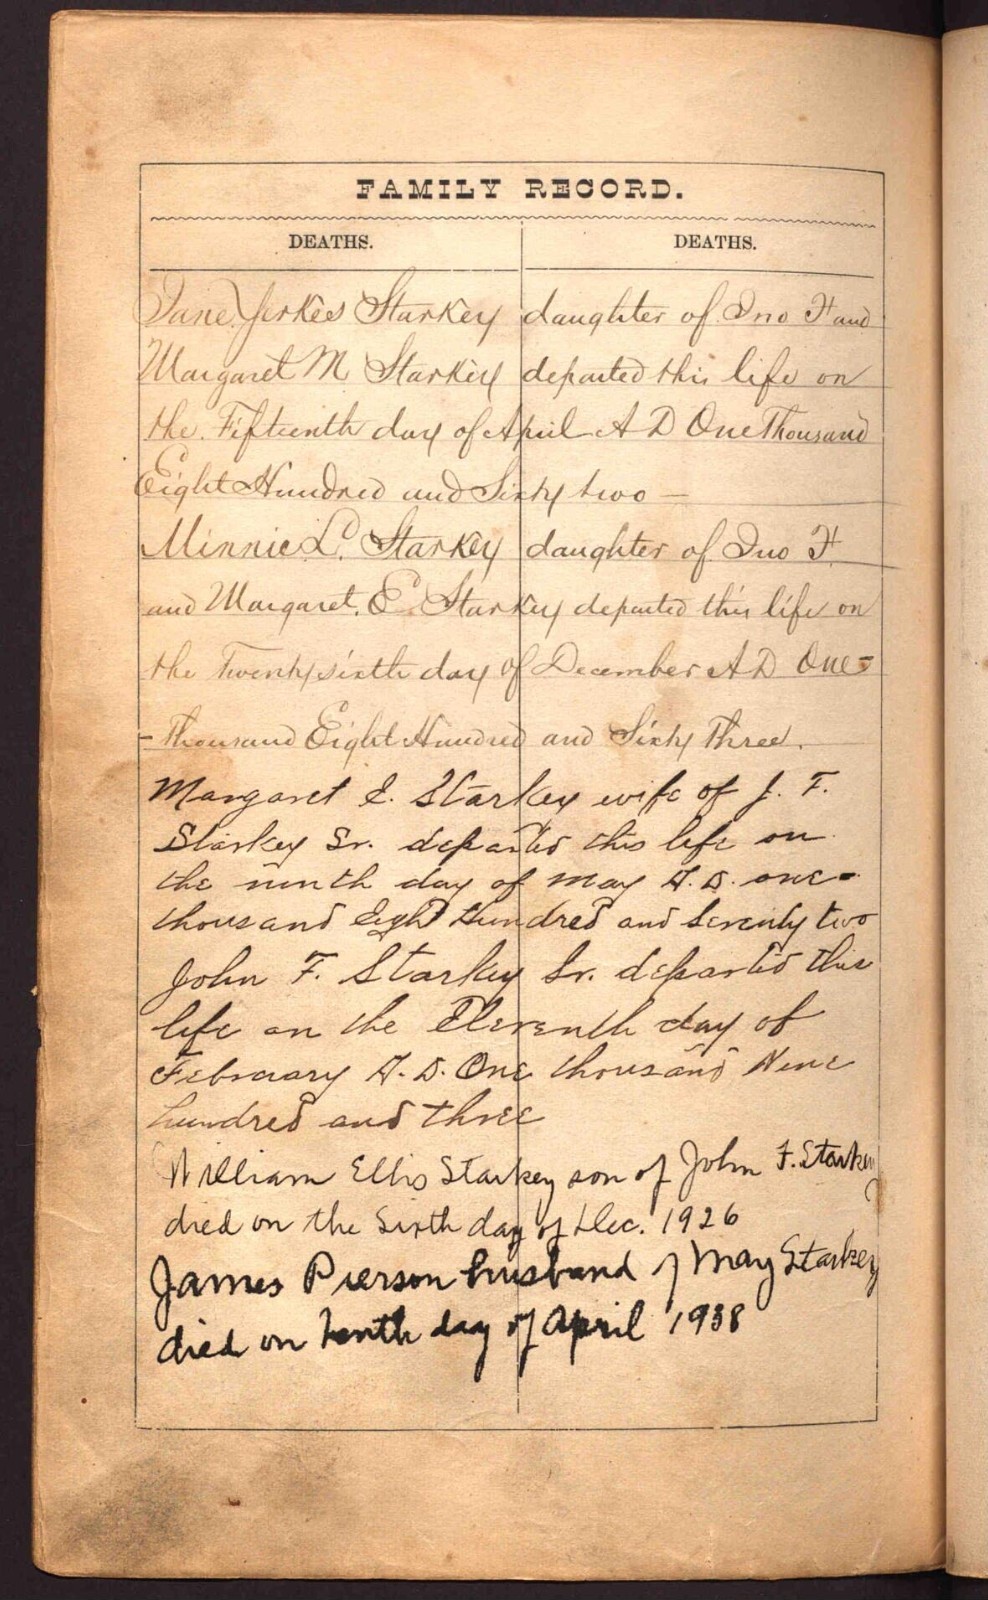 FAMILY RECORD.
DEATHS. DEATHS.
Jane Yerkes Starkey daughter of Jno F and
Margaret M Starkey departed this life on
the Fifteenth day of April A D One Thousand
Eight Hundred and Sixty two —
Minnie L. Starkey daughter of Jno F.
and Margaret. E Starkey departed this life on
the Twenty sixth day of December A D One-
- Thousand Eight Hundred and Sixty Three.
Margaret E. Starkey wife of J. F.
Starkey Sr. departed this life on
the ninth day of May A.D. one-
thousand Eight Hundred and Seventy two
John F. Starkey Sr. departed this
life on the Eleventh day of
February A.D. One thousand Nine
hundred and three
William Ellis Starkey son of John F. Starkey
died on the Sixth day of Dec. 1926
James Pierson husband of May Starkey
died on tenth day of April 1938